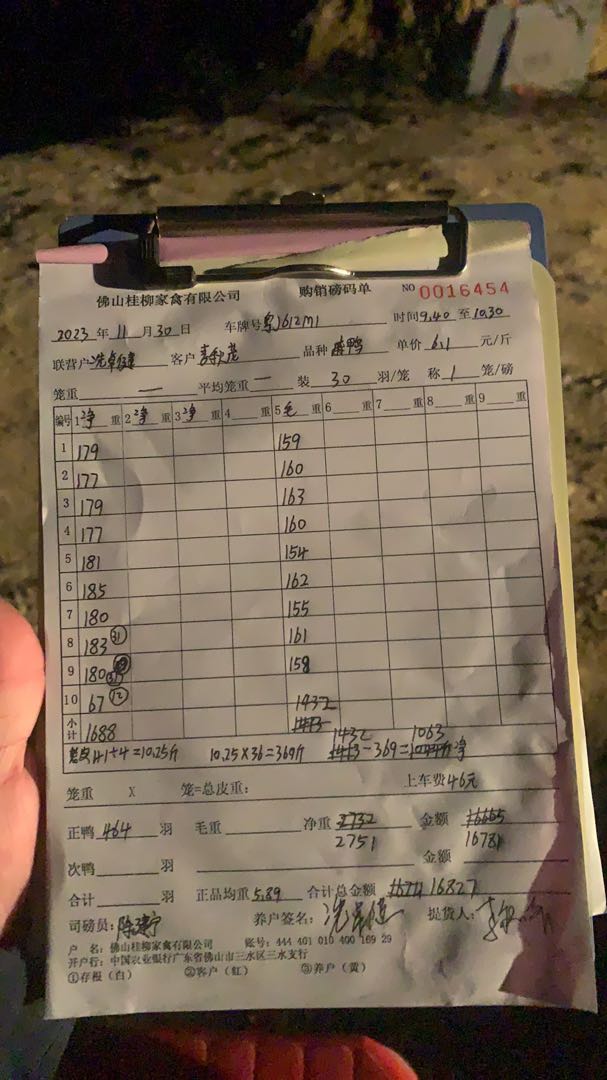 佛山桂柳家禽有限公司 购销磅码单 NO 0016454
2023 年 11 月 30 日 车牌号 粤J612M1 时间 9.40 至 10.30
联营户 冼 客户 品种 鸭 单价 6.1 元/斤
笼重 — 平均笼重 — 装 30 羽/笼 称 1 笼/磅
编号 1 净 重 2 净 重 3 净 重 4 重 5 毛 重 6 重 7 重 8 重 9 重
1 179 159
2 177 160
3 179 163
4 177 160
5 181 154
6 185 162
7 180 155
8 183 31 161
9 180 158
10 67 12 1432
小计 1688 1413
1432 1063
41÷4=10.25斤 10.25×36=369斤 1413-369= 净
笼重 X 笼=总皮重: 上车费46元
正鸭 464 羽 毛重 净重 2732 金额 16665
2751 16781
次鸭 羽 金额
合计 羽 正品均重 5.89 合计总金额 16827
司磅员: 养户签名: 提货人:
户 名: 佛山桂柳家禽有限公司 账号: 444 401 010 400 169 29
开户行: 中国农业银行广东省佛山市三水区三水支行
①存根(白) ②客户(红) ③养户(黄)